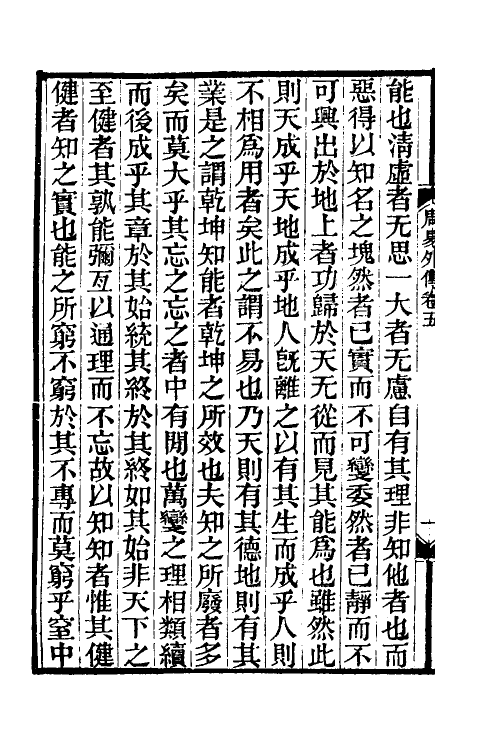 能也清虛者无思一大者无慮自有其理非知他者也而
惡得以知名之塊然者已實而不可變委然者已靜而不
可興出於地上者功歸於天无從而見其能爲也雖然此
則天成乎天地成乎地人旣離之以有其生而成乎人則
不相爲用者矣此之謂不易也乃天則有其德地則有其
業是之謂乾坤知能者乾坤之所效也夫知之所廢者多
矣而莫大乎其忘之忘之者中有閒也萬變之理相類續
而後成乎其章於其始統其終於其終如其始非天下之
至健者其孰能彌亙以通理而不忘故以知知者惟其健
健者知之實也能之所窮不窮於其不專而莫窮乎窒中
周易外傳卷五
一